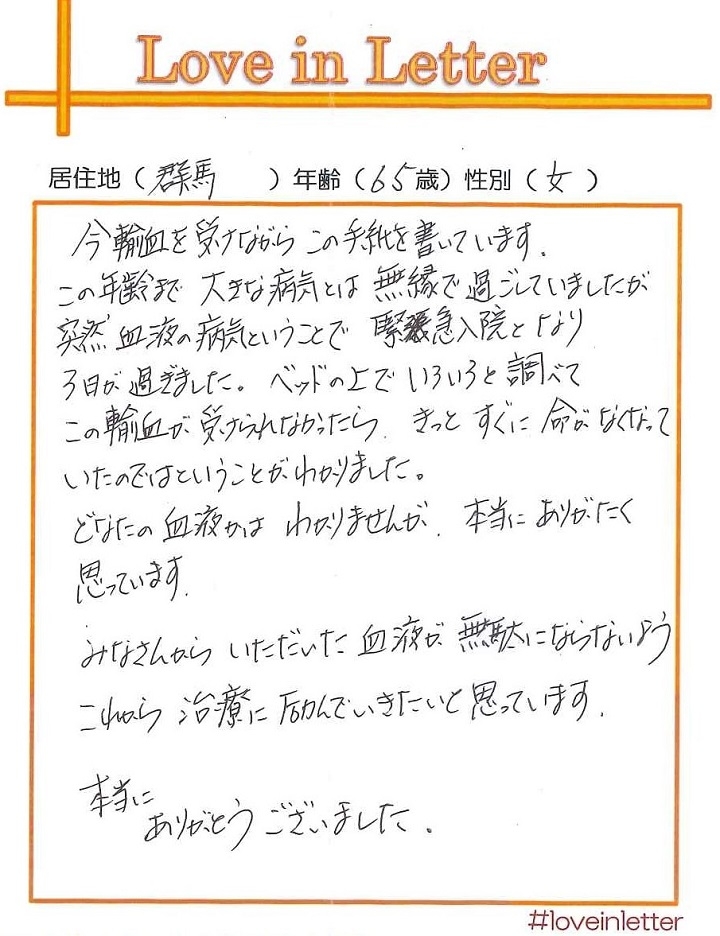 Love in Letter
居住地（群馬　　）年齢（65歳）性別（女）
今輸血を受けながらこの手紙を書いています.
この年齢まで 大きな病気とは 無縁で過ごしていましたが
突然 血液の病気ということで 緊急入院となり
3日が過ぎました。ベッドの上でいろいろと調べて
この輸血が受けられなかったら. きっと すぐに 命がなくなって
いたのではということがわかりました。
どなたの血液かは わかりませんが. 本当に ありがたく
思っています.
みなさんから いただいた 血液が 無駄にならないよう
これから 治療に励んでいきたいと思っています.
本当に
ありがとうございました.
#loveinletter